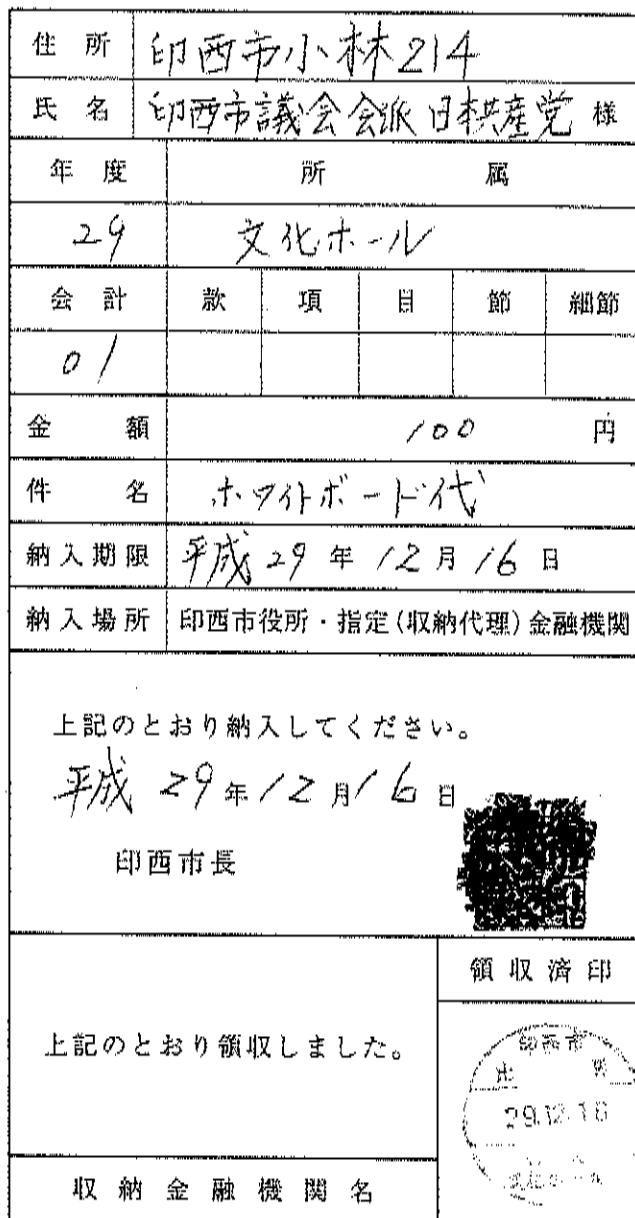 住所 印西市小林214
氏名 印西市議会会派日本共産党 様
年度 所属
29 文化ホール
会計 款 項 目 節 細節
01
金額 100 円
件名 ホワイトボード代
納入期限 平成29年12月16日
納入場所 印西市役所・指定(収納代理)金融機関
上記のとおり納入してください。
平成29年12月16日
印西市長
領収済印
上記のとおり領収しました。
印西市
出
29.12.16
収納金融機関名